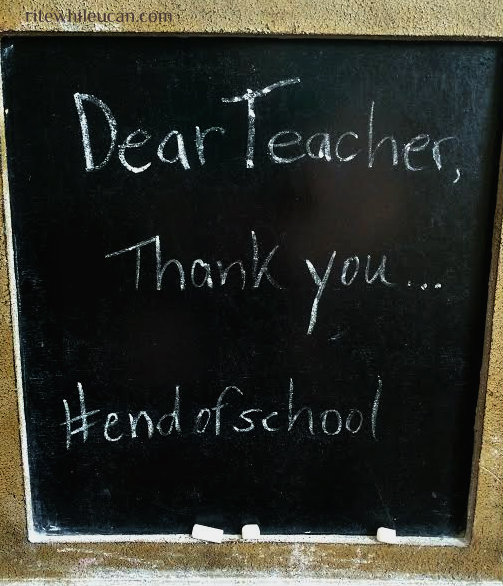 ritewhileucan.com
Dear Teacher,
Thank you...
#endofschool